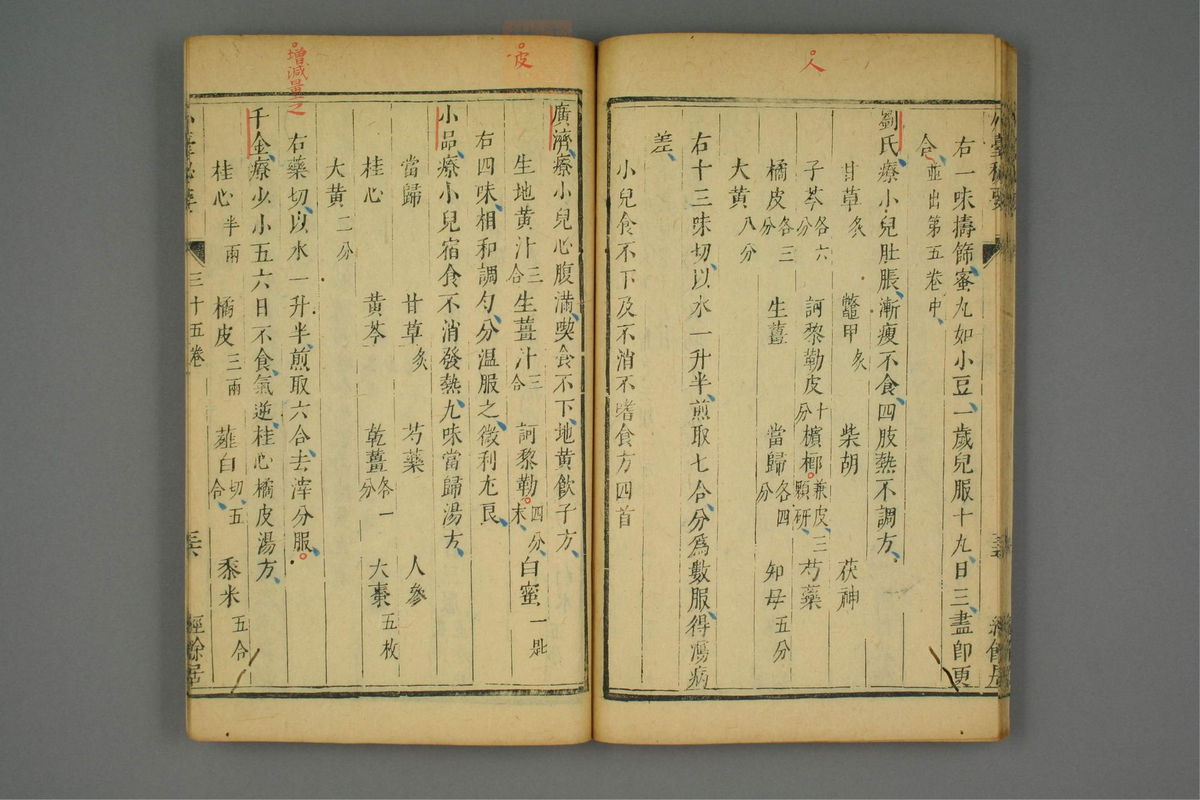 人
右一味擣篩蜜丸如小豆一歲兒服十丸日三盡卽更
合並出第五卷中
劉氏療小兒肚脹漸瘦不食四肢熱不調方
甘草炙 鼈甲炙 柴胡 茯神
子芩各六分 訶黎勒皮十分 檳榔兼皮三顆研 芍藥
橘皮各三分 生薑 當歸各四分 知母五分
大黃八分
右十三味切以水一升半煎取七合分爲數服得瀉病
差
小兒食不下及不消不嗜食方四首
皮
廣濟療小兒心腹滿喫食不下地黃飲子方
生地黃汁三合 生薑汁三合 訶黎勒四分末 白蜜一匙
右四味相和調勻分溫服之微利尤良
小品療小兒宿食不消發熱九味當歸湯方
當歸 甘草炙 芍藥 人參
桂心 黃芩 乾薑各一分 大棗五枚
大黃二分
增減量之
右藥切以水一升半煎取六合去滓分服
千金療少小五六日不食氣逆桂心橘皮湯方
桂心半兩 橘皮三兩 薤白切五合 黍米五合
三十五卷
經餘居